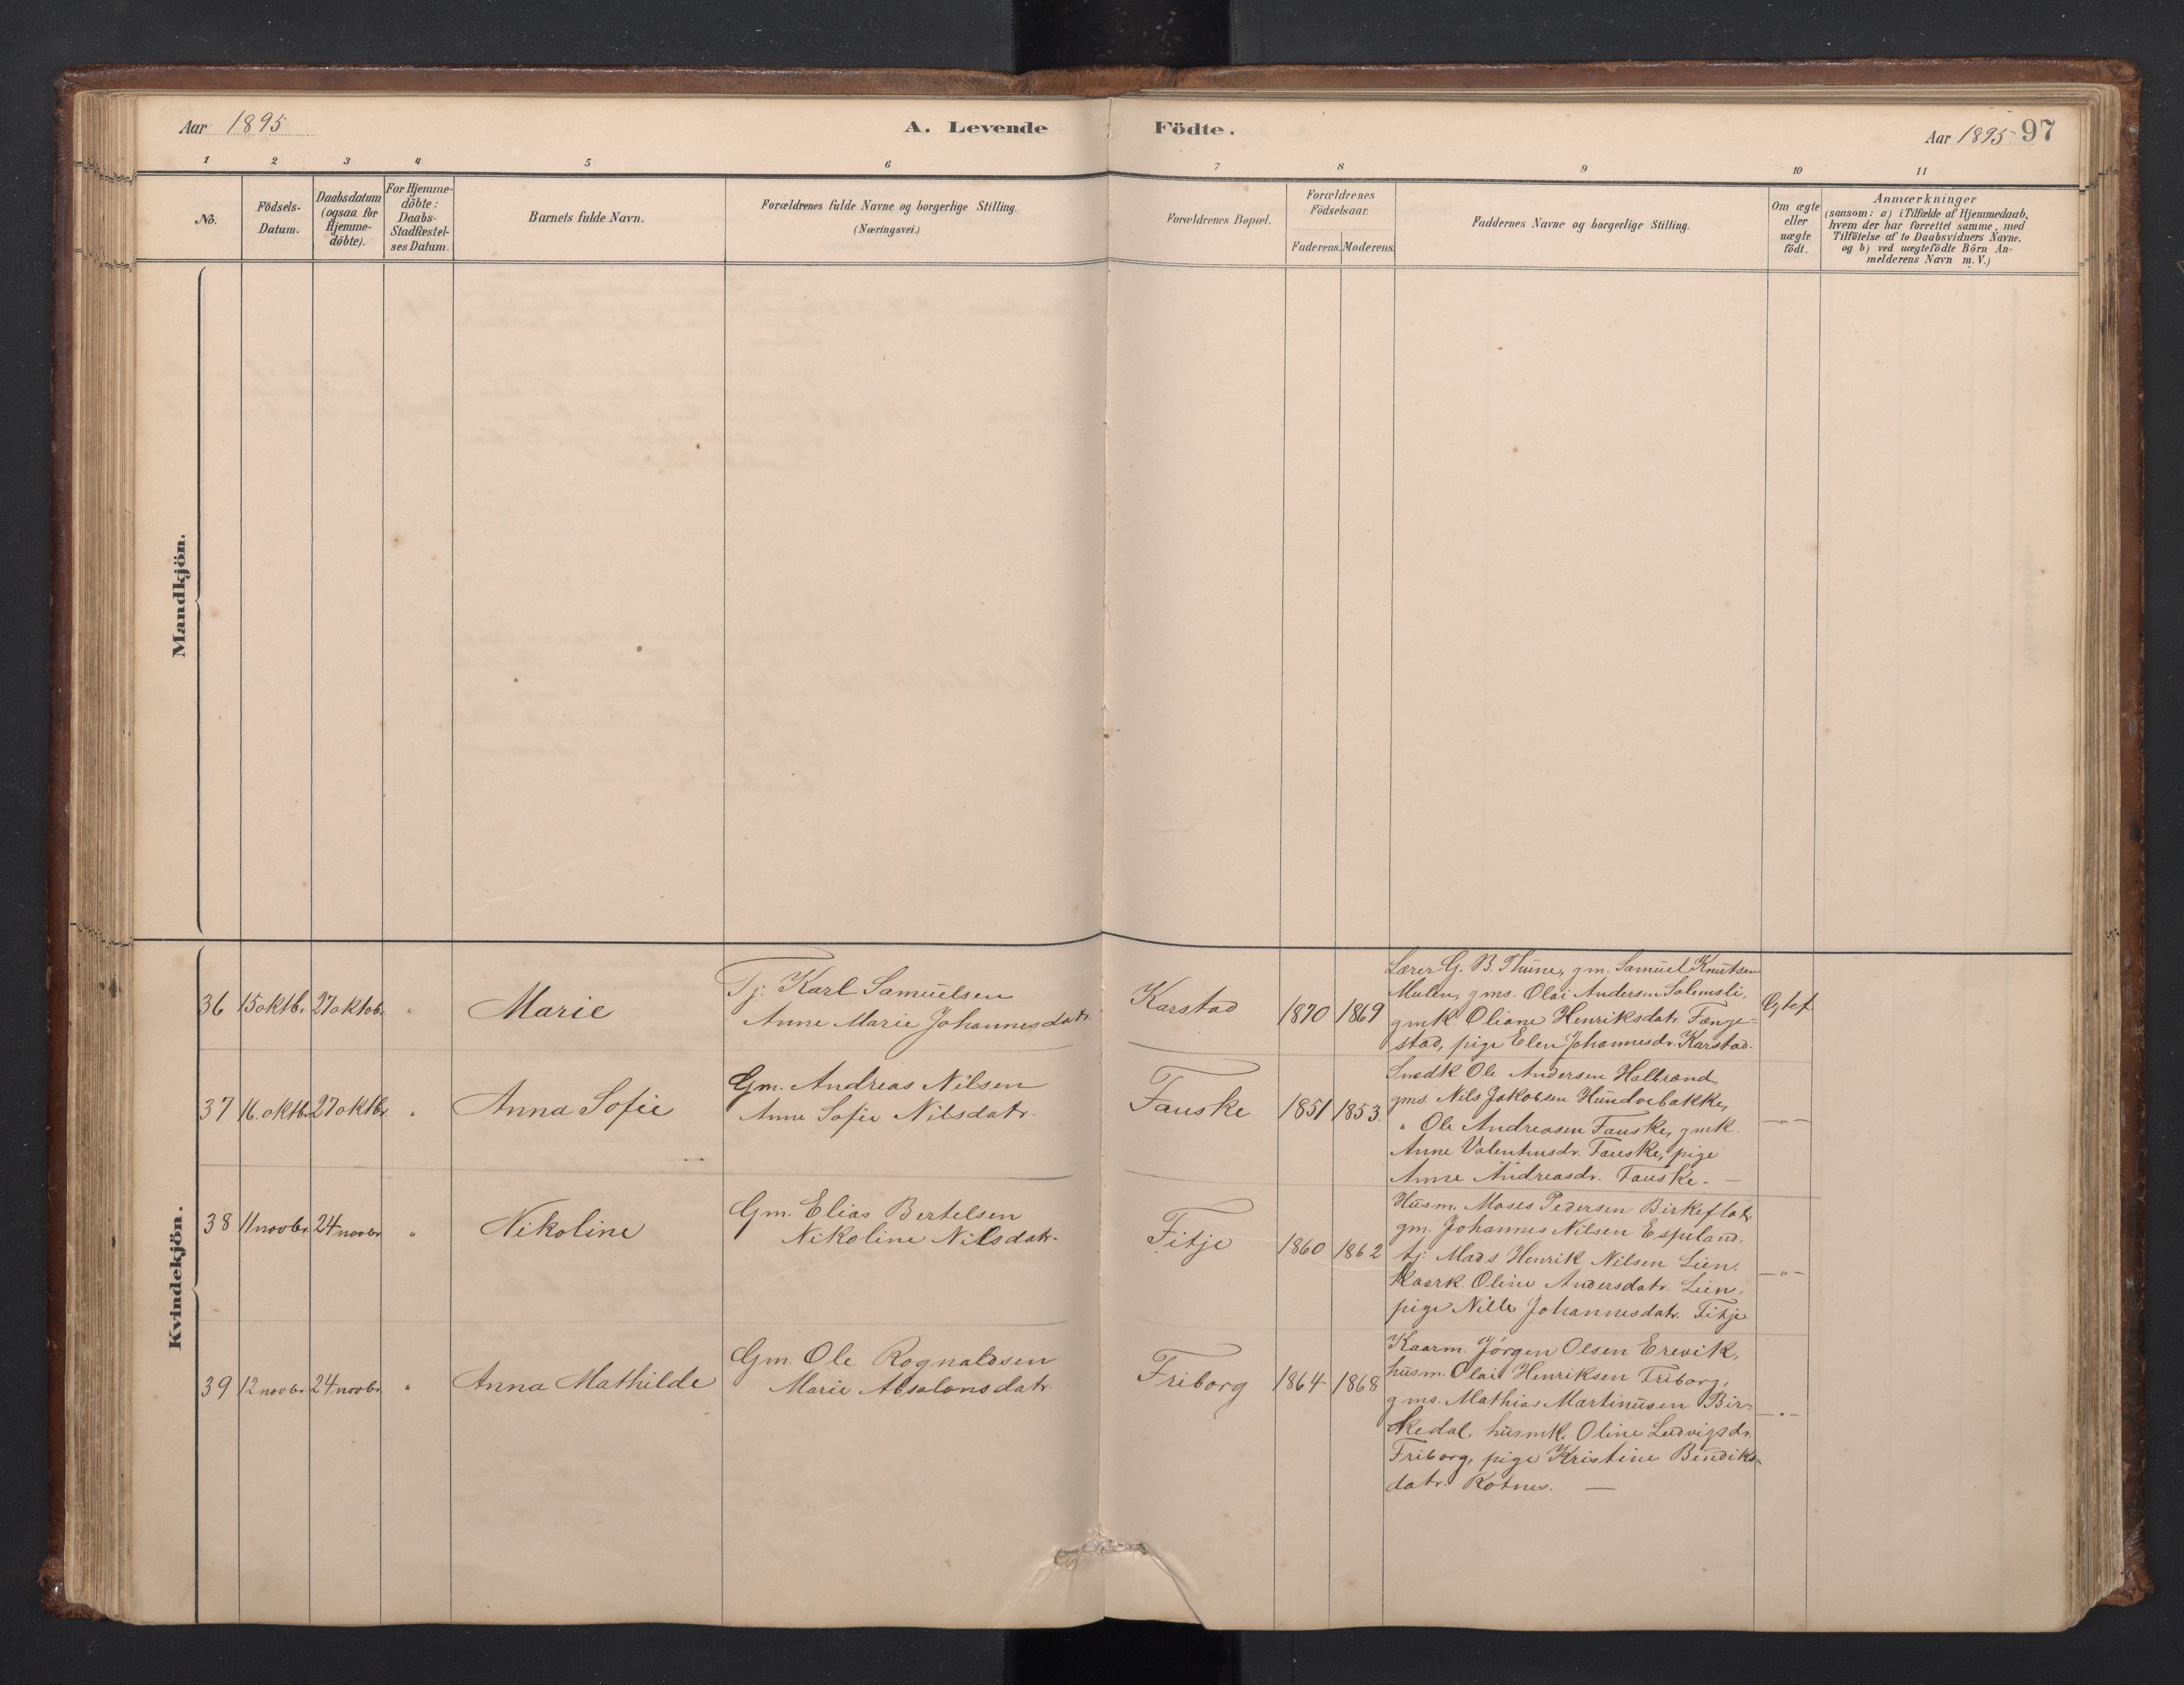 Aar 1895
A. Levende Födte.
Aar 1895 97
1 2 3 4 5 6 7 8 9 10 11
No.
Födsels-
Datum.
Daabsdatum
(ogsaa for
Hjemme-
döbte).
For Hjemme-
döbte:
Daabs-
Stadfæstel-
ses Datum.
Barnets fulde Navn.
Forældrenes fulde Navne og borgerlige Stilling.
(Næringsvei.)
Forældrenes Bopæl.
Forældrenes
Födselsaar.
Faderens. Moderens.
Faddernes Navne og borgerlige Stilling.
Om ægte
eller
uægte
födt.
Anmærkninger
(saasom: a) i Tilfælde af Hjemmedaab,
hvem der har forrettet samme, med
Tilföielse af to Daabsvidners Navne,
og b) ved uægtefödte Börn An-
melderens Navn m.V.)
Mandkjön.
Kvindekjön.
36 15 oktb. 27 oktob. "
Marie
Tj. Karl Samuelsen
Anne Marie Johannesdatr.
Karstad
1870 1869
Lærer G. B. Thune, gm. Samuel Knutsen
Mulen, gms. Olai Andersen Solemsli,
gmk. Oliane Henriksdatr. Fænge=
stad, pige Elen Johannesdr. Karstad.
Egtef
37 16. oktbr. 27 oktbr. "
Anna Sofie
Gm. Andreas Nilsen
Anne Sofie Nilsdatr.
Fauske
1851 1853.
Snedk Ole Andersen Halbrend,
gms. Nils Jakobsen Hundvebakke,
" Ole Andreasen Fauske, gmk.
Anne Valentinsdr. Fauske, pige
Anne Andreasdr. Fauske. —
—"—
38 11 novbr. 24 novbr. "
Nikoline
Gm. Elias Bertelsen
Nikoline Nilsdatr.
Fitje
1860 1862
Husm. Moses Pedersen Birkeflot,
gm. Johannes Nilsen Espeland,
tj. Mads Henrik Nilsen Lien,
kaark. Oline Andersdatr. Lien,
pige Nille Johannesdatr. Fitje
—"—
39 12 novbr. 24 novbr. "
Anna Mathilde
Gm. Ole Rognaldsen
Marie Absalonsdatr.
Friborg
1864 1868
Kaarm. Jörgen Olsen Erevik,
husm. Olai Henriksen Friborg,
gms. Mathias Martinusen Bir=
kedal, husmk. Oline Ludvigsdr.
Friborg, pige Kristine Bendiks=
datr. Rotnes. —
—"—